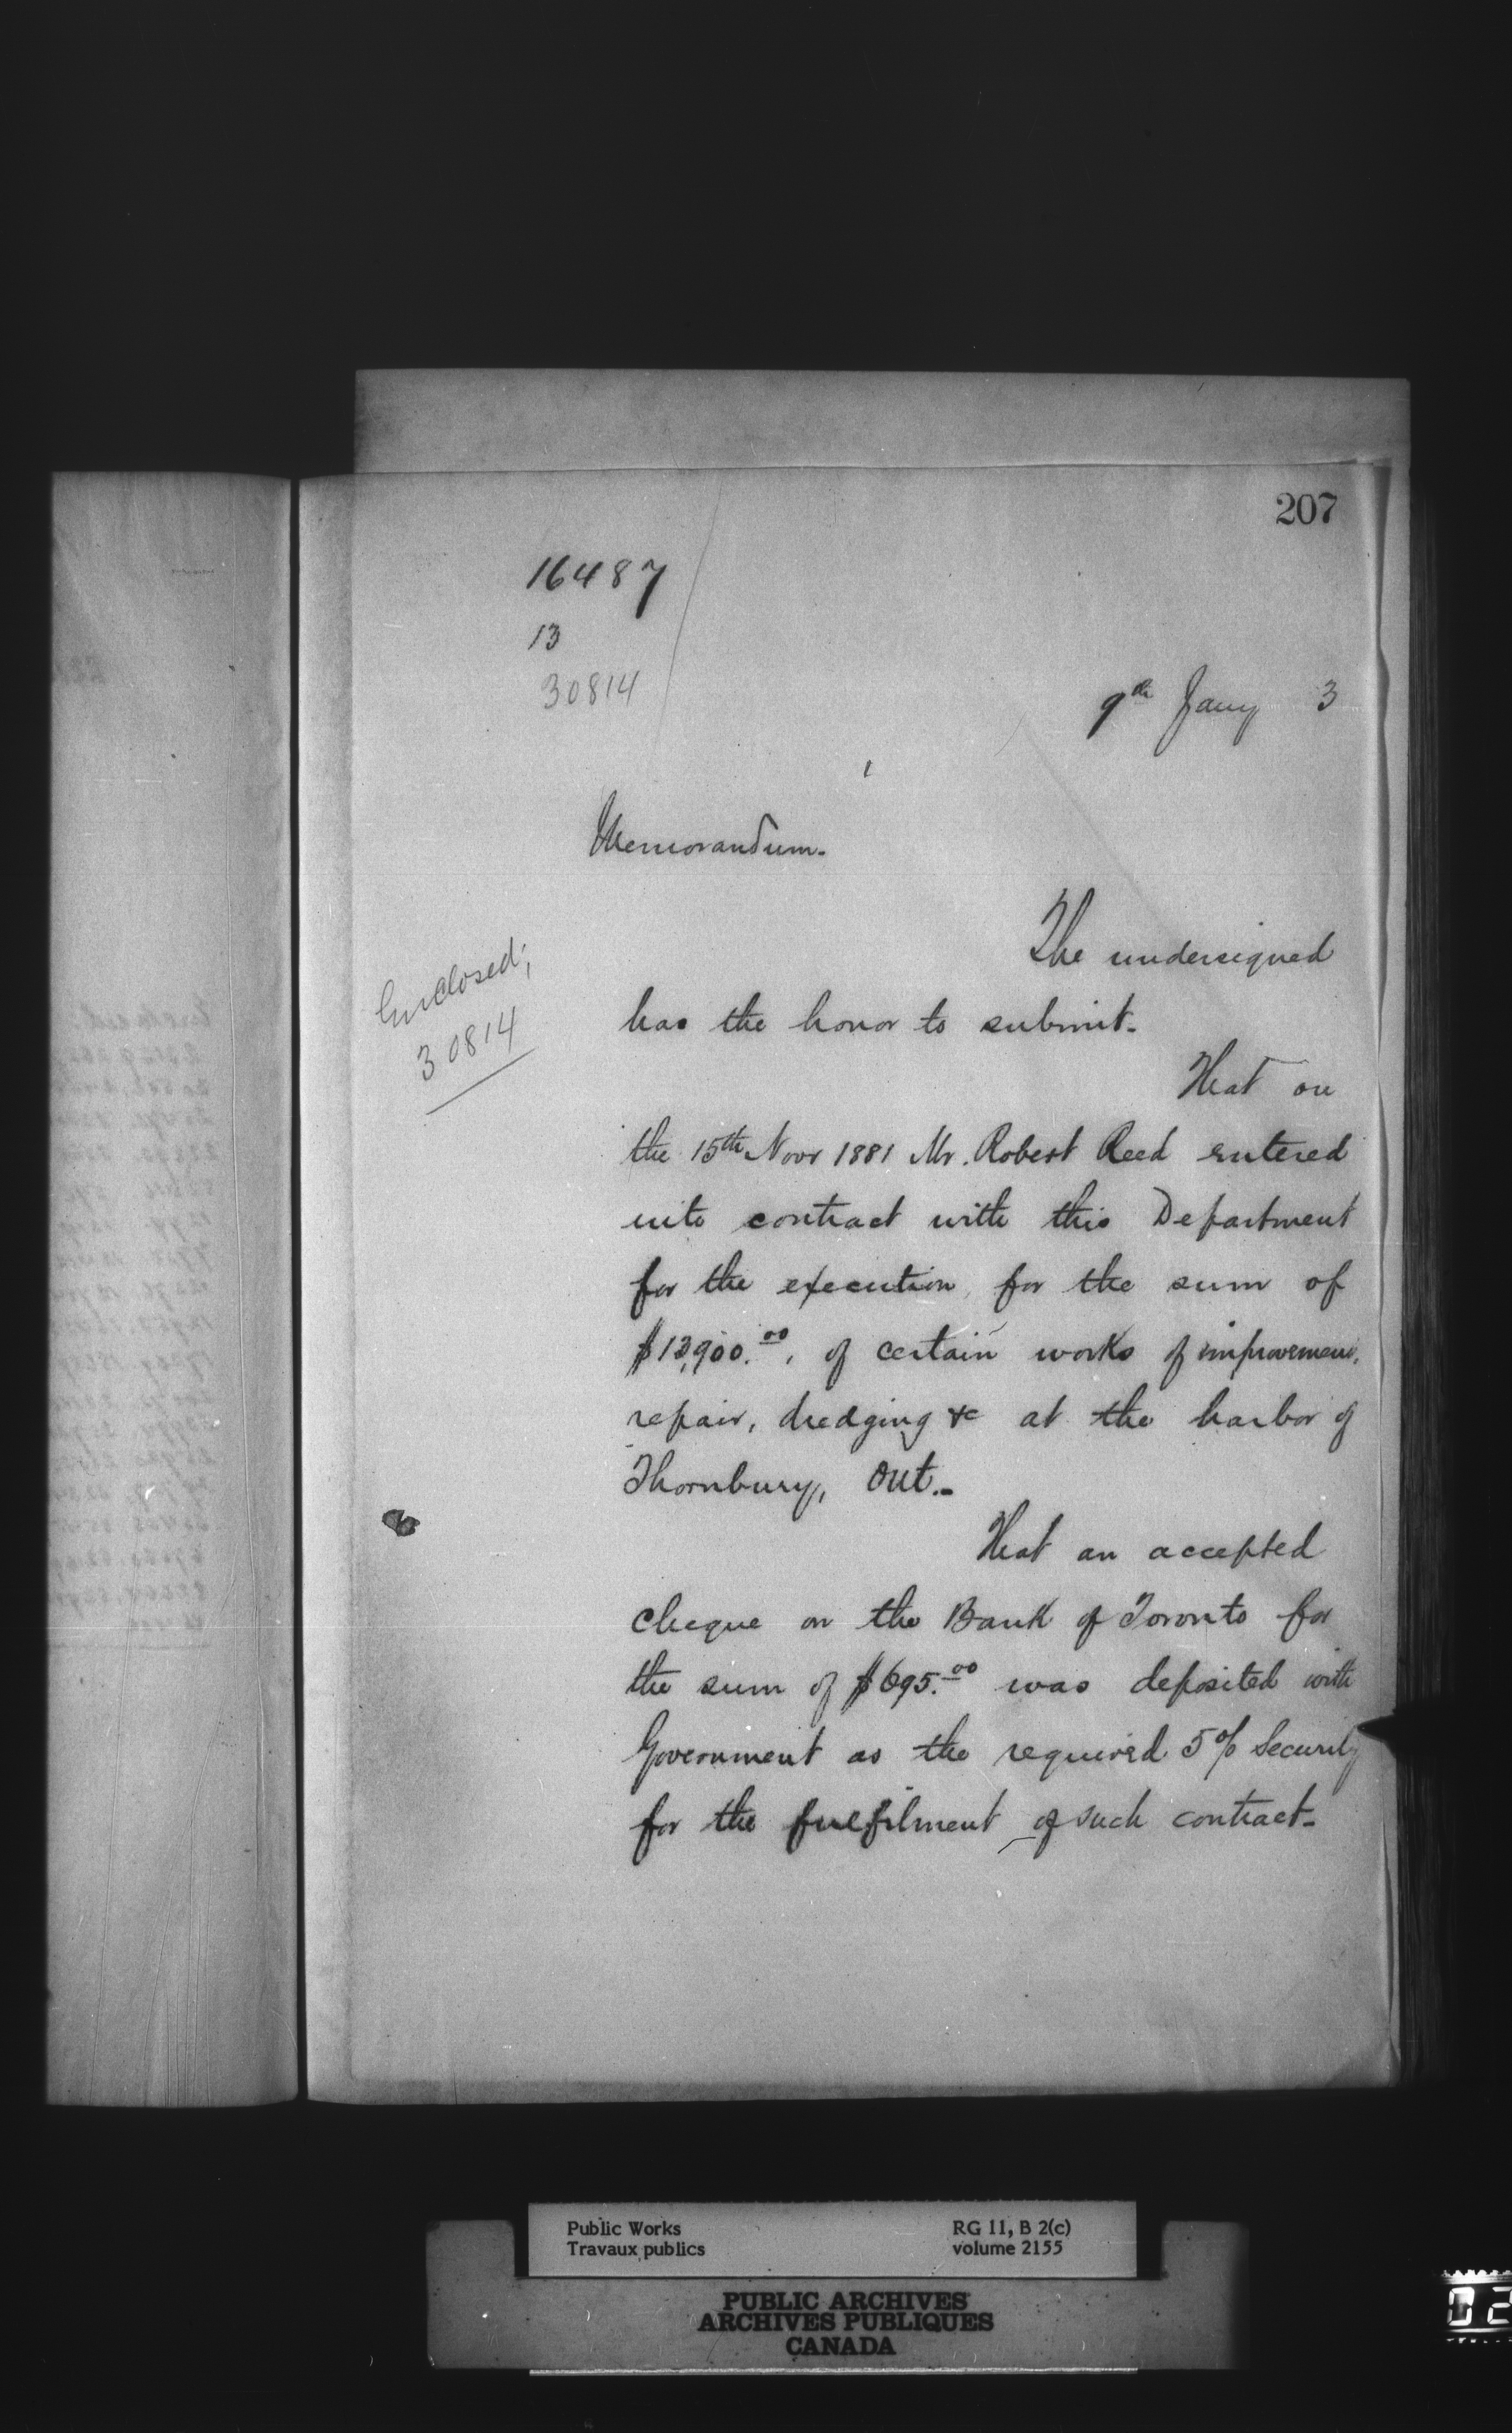 207
16487
13
30814
9th Jany 3
Memorandum.
Enclosed;
30814
The undersigned
has the honor to submit.
That on
the 15th Novr 1881 Mr. Robert Reed entered
into contract with this Department
for the execution, for the sum of
$13,900.00, of certain works of improvement,
repair, dredging &c at the harbor of
Thornbury, Ont.-
That an accepted
cheque on the Bank of Toronto for
the sum of $695.00 was deposited with
Government as the required 5% Security
for the fulfilment of such contract.-
Public Works
Travaux publics
RG 11, B 2(c)
volume 2155
PUBLIC ARCHIVES
ARCHIVES PUBLIQUES
CANADA
02